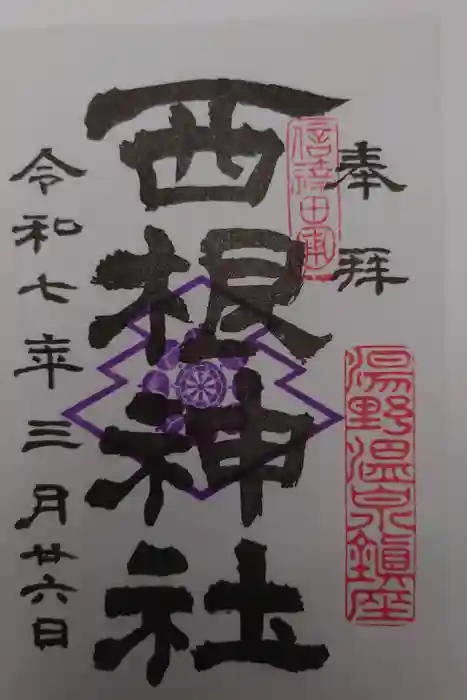 奉拝
湯野温泉鎮座
西根神社
令和七年三月廿六日